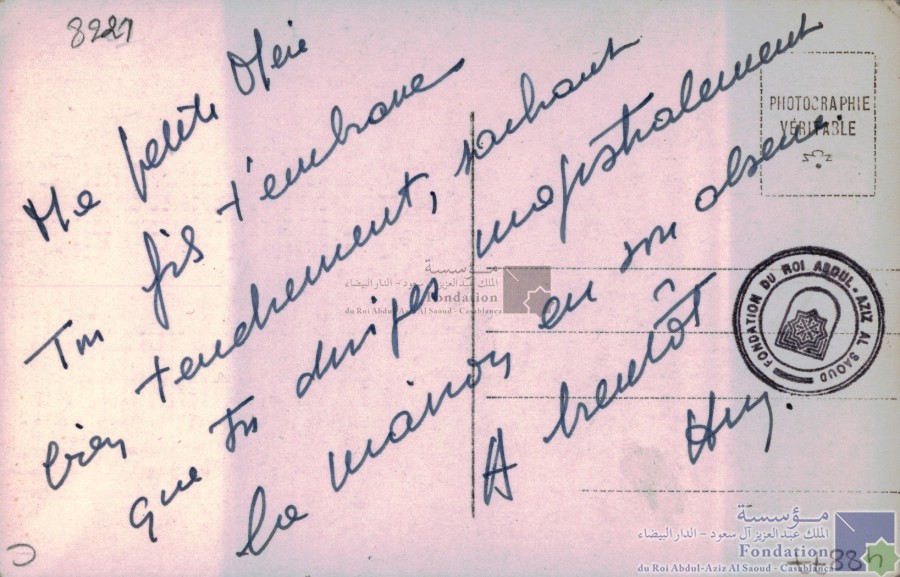 8221
Ma petite Mère
Ton fils t'embrasse
bien tendrement, sachant
que tu diriges magistralement
la maison en son absence.
A bientôt
PHOTOGRAPHIE
VÉRITABLE
FONDATION DU ROI ABDUL-AZIZ AL SAOUD
مؤسسة
الملك عبد العزيز آل سعود - الدار البيضاء
Fondation
du Roi Abdul-Aziz Al Saoud - Casablanca
مؤسسة
الملك عبد العزيز آل سعود - الدار البيضاء
Fondation
du Roi Abdul-Aziz Al Saoud - Casablanca